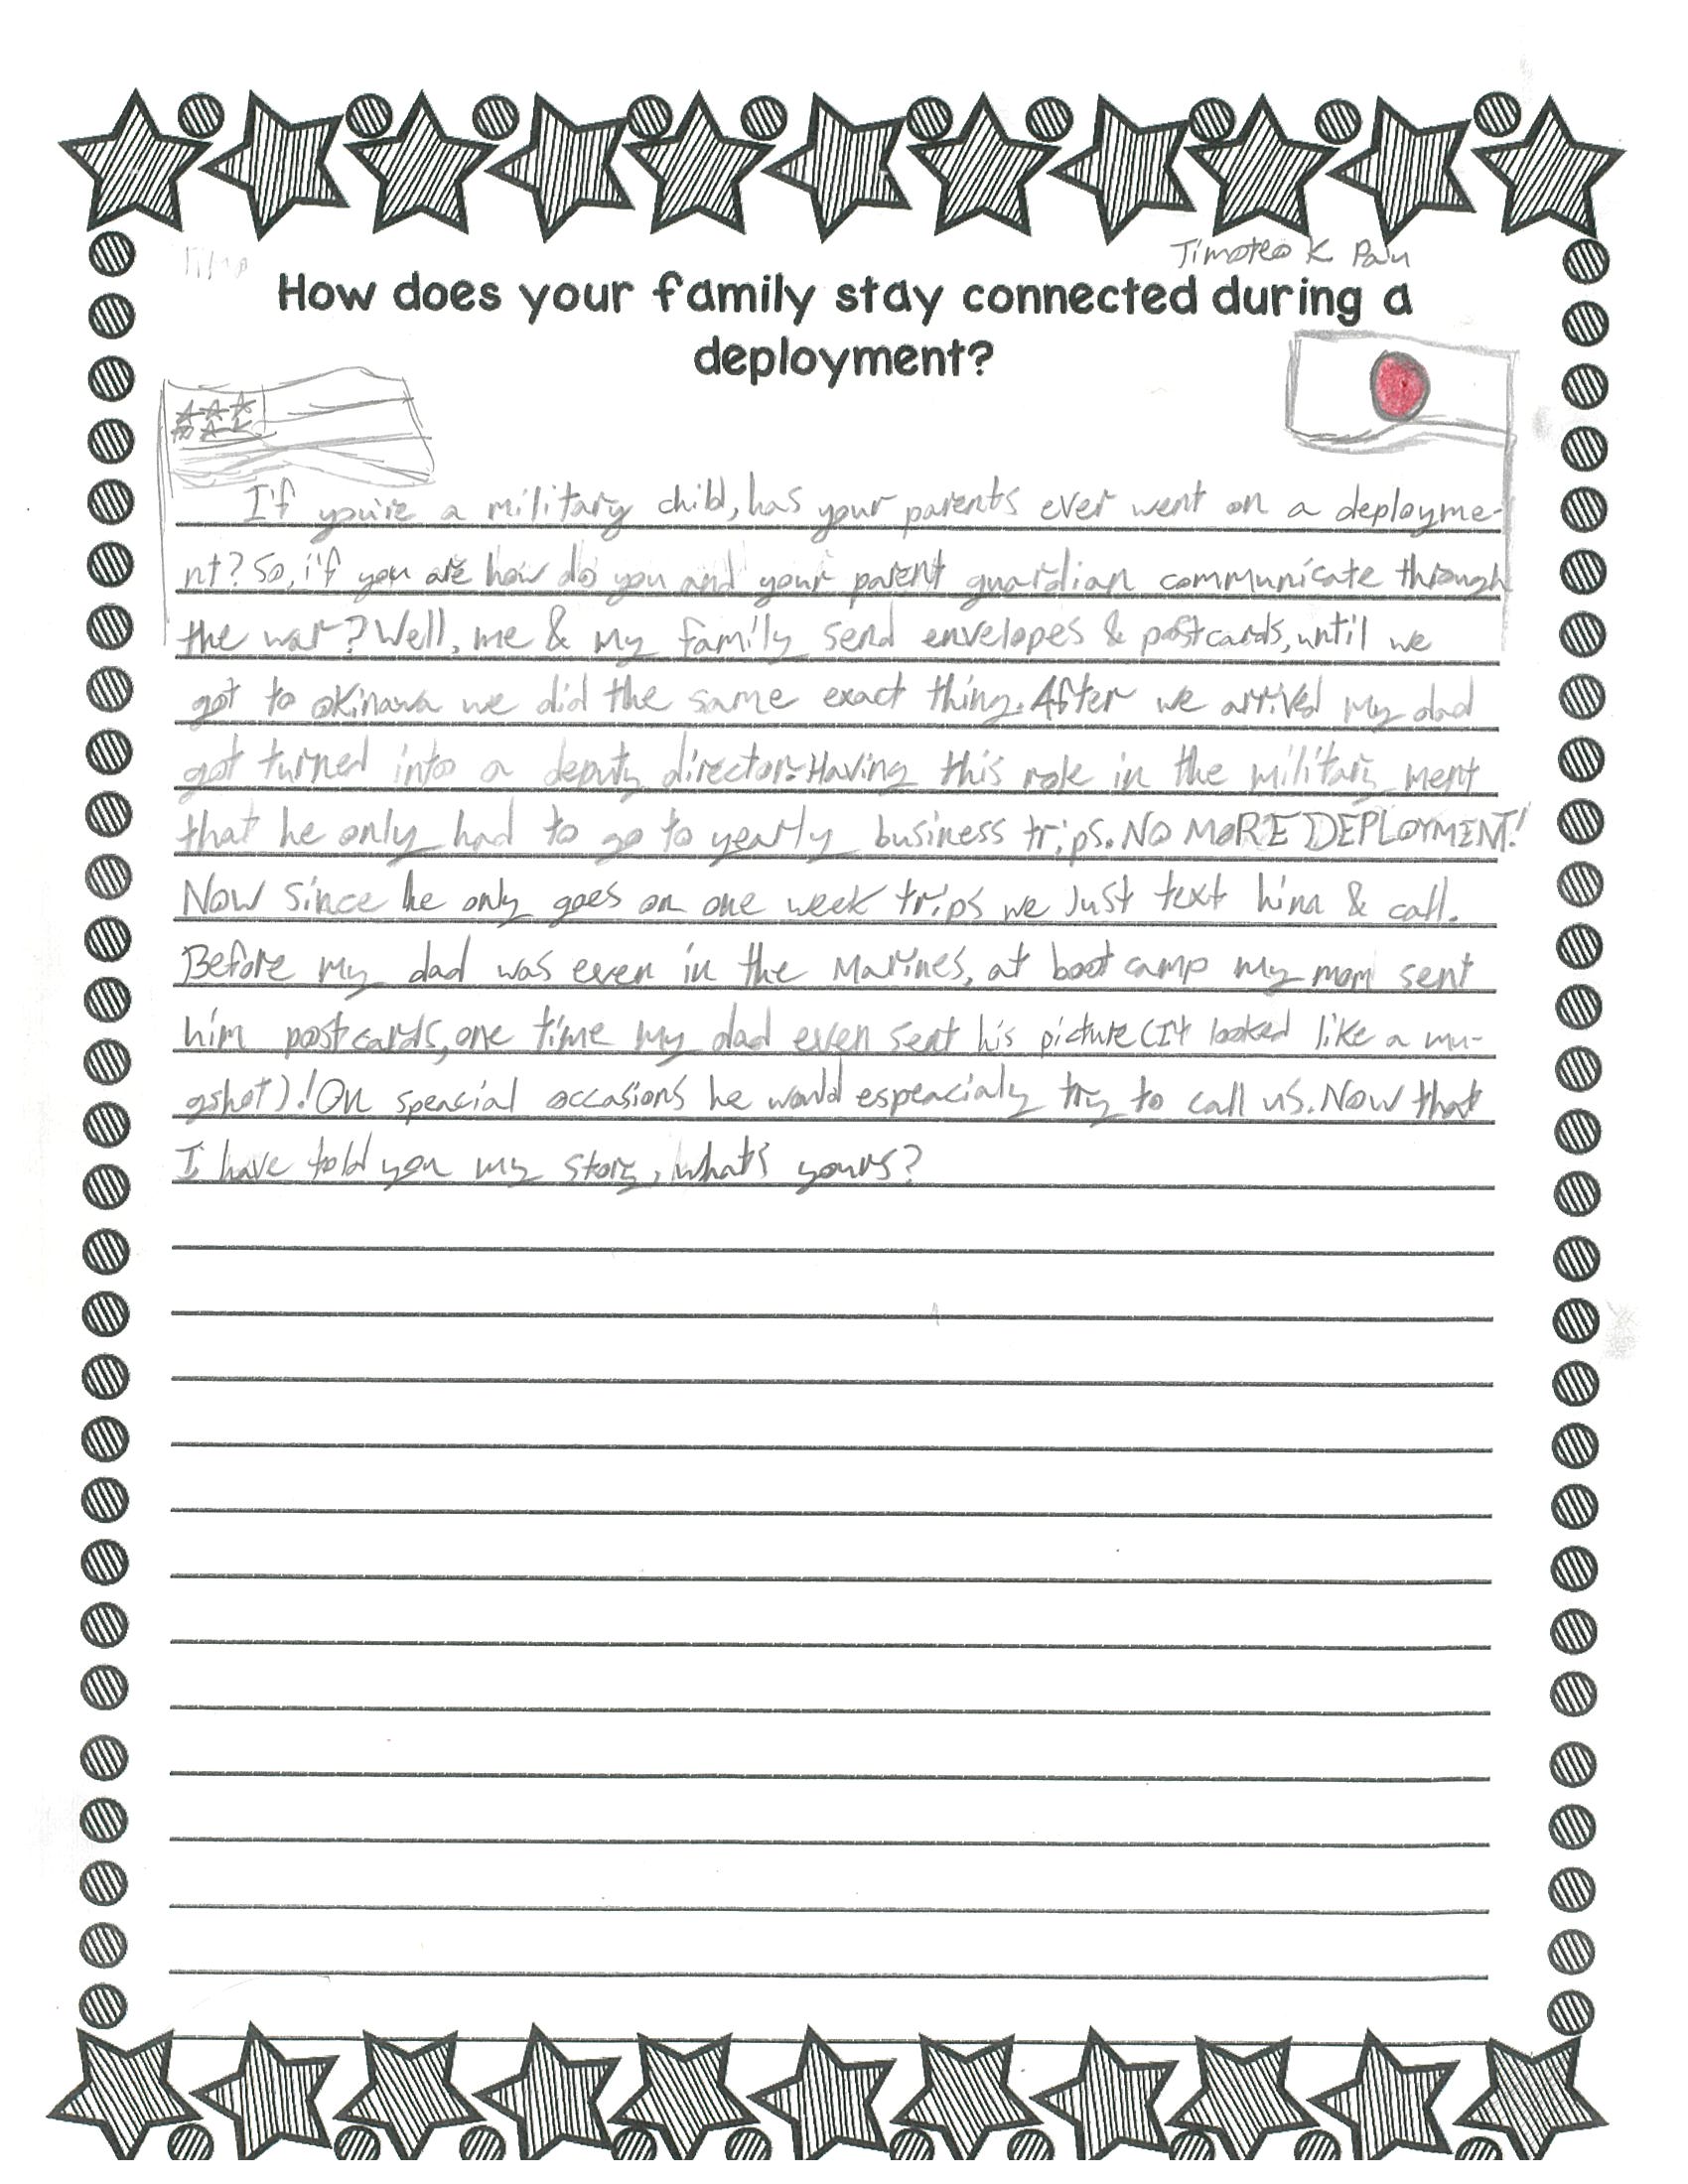 Timoteo K Pau
How does your family stay connected during a
deployment?
If you're a military child, has your parents ever went on a deployme-
nt? So, if you are how do you and your parent guardian communicate through
the war? Well, me & my family send envelopes & postcards, until we
got to okinawa we did the same exact thing. After we arrived my dad
got turned into a deputy director. Having this role in the military ment
that he only had to go to yearly business trips. NO MORE DEPLOYMENT!
Now since he only goes on one week trips we Just text him & call.
Before my dad was even in the Marines, at boot camp my mom sent
him postcards, one time my dad even sent his picture (It looked like a mu-
gshot)! On speacial occasions he would espeacialy try to call us. Now that
I have told you my story, what's yours?